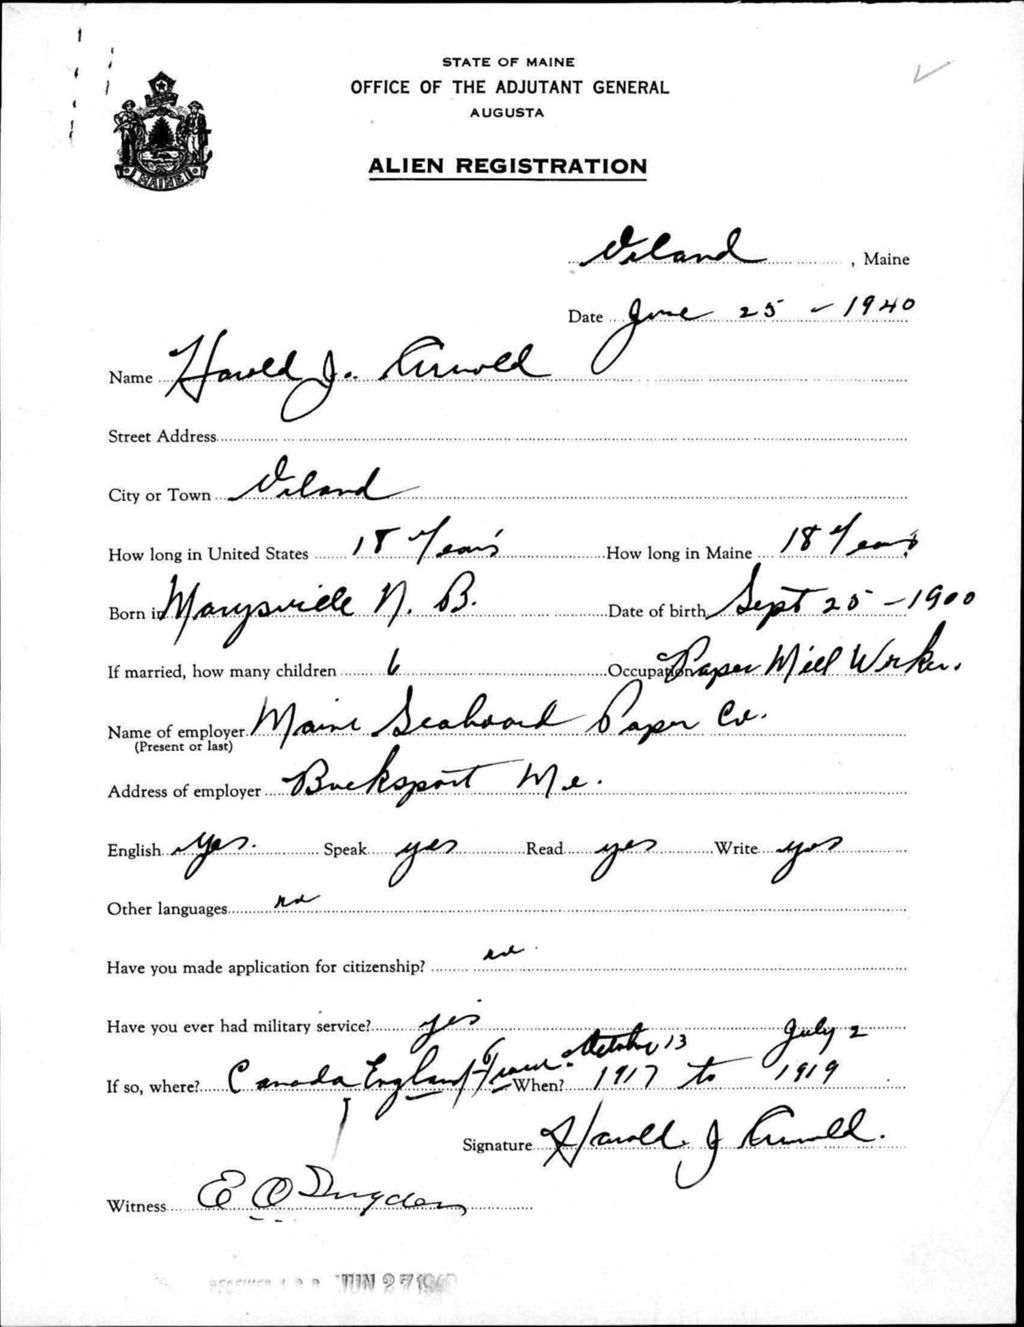 STATE OF MAINE
OFFICE OF THE ADJUTANT GENERAL
AUGUSTA
ALIEN REGISTRATION
MAINE
Orland, Maine
Date June 25 - 1940
Name Harold J. Arnold
Street Address
City or Town Orland
How long in United States 18 Years How long in Maine 18 Years
Born in Marysville N. B. Date of birth Sept 25 - 1900
If married, how many children 6 Occupation Paper Mill Worker.
Name of employer Maine Seaboard Paper Co.
(Present or last)
Address of employer Bucksport Me.
English yes. Speak yes Read yes Write yes
Other languages no
Have you made application for citizenship? no
Have you ever had military service? yes
If so, where? Canada England France When? October 13 1917 to July 2 1919
Signature Harold J Arnold.
Witness E O
JUN 27 1940